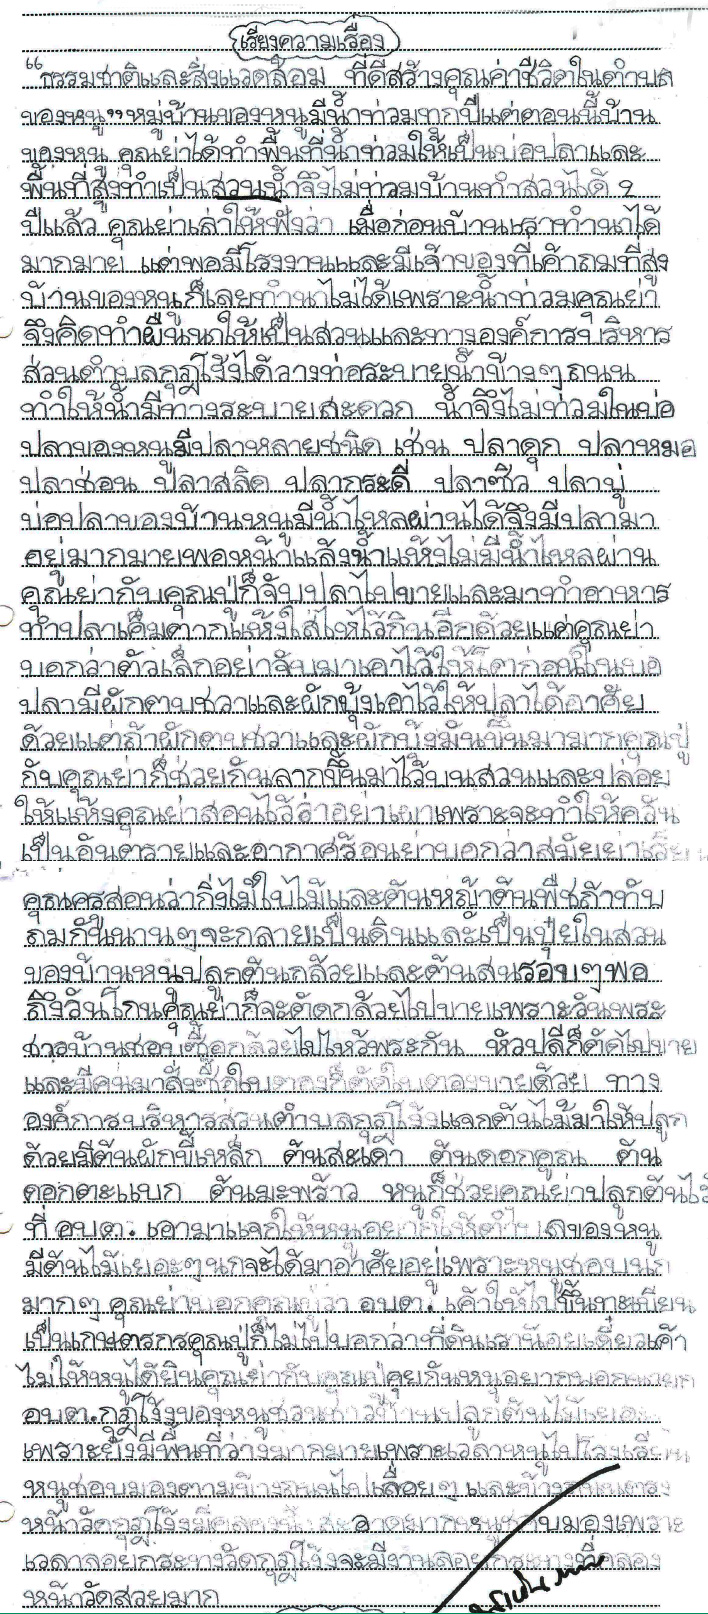 เรียงความเรื่อง
“ธรรมชาติและสิ่งแวดล้อม ที่ดีสร้างคุณค่าชีวิตในตำบล
ของหนู” หมู่บ้านของหนูมีน้ำท่วมทุกปีแต่ตอนนี้บ้าน
ของหนู คุณย่าได้ทำพื้นที่น้ำท่วมให้เป็นบ่อปลาและ
พื้นที่สูงทำเป็นสวนน้ำจึงไม่ท่วมบ้านทำสวนได้ 2
ปีแล้ว คุณย่าเล่าให้ฟังว่า เมื่อก่อนบ้านเราทำนาได้
มากมาย แต่พอมีโรงงานและมีเจ้าของที่เค้าถมที่สูง
บ้านของหนูก็เลยทำนาไม่ได้เพราะน้ำท่วมคุณย่า
จึงคิดทำผืนนาให้เป็นสวนและทางองค์การบริหาร
ส่วนตำบลกุฎโง้งได้วางท่อระบายน้ำข้างๆถนน
ทำให้น้ำมีทางระบายสะดวก น้ำจึงไม่ท่วมในบ่อ
ปลาของหนูมีปลาหลายชนิด เช่น ปลาดุก ปลาหมอ
ปลาช่อน ปลาสลิด ปลากระดี่ ปลาซิว ปลาบู่
บ่อปลาของบ้านหนูมีน้ำไหลผ่านได้จึงมีปลามา
อยู่มากมายพอหน้าแล้งน้ำแห้งไม่มีน้ำไหลผ่าน
คุณย่ากับคุณปู่ก็จับปลาไปขายและมาทำอาหาร
ทำปลาเค็มตากแห้งใส่ไห้ไว้กินอีกด้วยแต่คุณย่า
บอกว่าตัวเล็กอย่าจับมาเอาไว้ให้โตก่อนในบ่อ
ปลามีผักตบชวาและผักบุ้งเอาไว้ให้ปลาได้อาศัย
ด้วยแต่ถ้าผักตบชวาและผักบุ้งมันขึ้นมามากคุณปู่
กับคุณย่าก็ช่วยกันลากขึ้นมาไว้บนสวนและปล่อย
ให้แห้งคุณย่าสอนไว้ว่าอย่าเผาเพราะจะทำให้ควัน
เป็นอันตรายและอากาศร้อนย่าบอกว่าสมัยย่าเรียน
คุณครูสอนว่ากิ่งไม้ใบไม้และต้นหญ้าต้นพืชถ้าทับ
ถมกันนานๆจะกลายเป็นดินและเป็นปุ๋ยในสวน
ของบ้านหนูปลูกต้นกล้วยและต้นสนรอบๆพอ
ถึงวันโกนคุณย่าก็จะตัดกล้วยไปขายเพราะวันพระ
ชาวบ้านชอบซื้อกล้วยไปไหว้พระกัน หัวปลีก็ตัดไปขาย
และมีคนมาสั่งซื้อใบตองก็ตัดใบตองขายด้วย ทาง
องค์การบริหารส่วนตำบลกุฎโง้งแจกต้นไม้มาให้ปลูก
ด้วยมีต้นผักขี้เหล็ก ต้นสะเดา ต้นดอกคูณ ต้น
ดอกตะแบก ต้นมะพร้าว หนูก็ช่วยคุณย่าปลูกต้นไม้
ที่ อบต. เอามาแจกให้หนูอยากให้ตำบลของหนู
มีต้นไม้เยอะๆนกจะได้มาอาศัยอยู่เพราะหนูชอบนก
มากๆ คุณย่าบอกคุณปู่ว่า อบต. เค้าให้ไปขึ้นทะเบียน
เป็นเกษตรกรคุณปู่ก็ไม่ไปบอกว่าที่ดินเราน้อยเดี๋ยวเค้า
ไม่ให้หนูได้ยินคุณย่ากับคุณปู่คุยกันหนูอยากบอกนายก
อบต.กุฎโง้งของหนูชวนชาวบ้านปลูกต้นไม้เยอะ
เพราะยังมีพื้นที่ว่างมากมายเพราะเวลาหนูไปโรงเรียน
หนูชอบมองตามข้างถนนไปเลื่อยๆ และข้างถนนตรง
หน้าวัดกุฎโง้งมีคลองน้ำสะอาดมากหนูชอบมองเพราะ
เวลาลอยกระทงวัดกุฎโง้งจะมีงานลอยกระทงที่คลอง
หน้าวัดสวยมาก